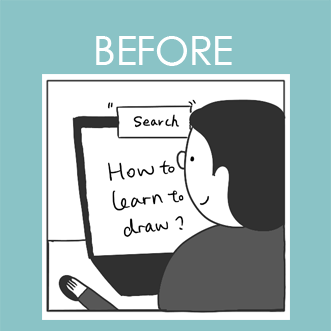 BEFORE
" Search "
How to
learn to
draw?